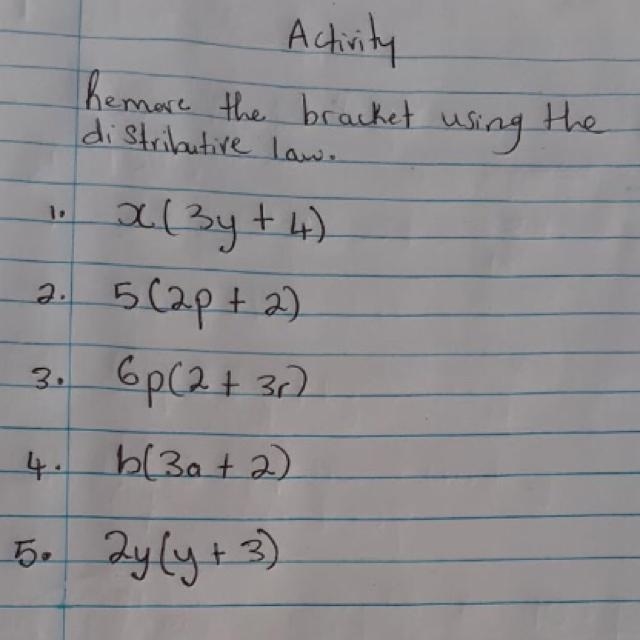 Activity
Remove the bracket using the
distributive law.
1. x(3y + 4)
2. 5(2p + 2)
3. 6p(2 + 3r)
4. b(3a + 2)
5. 2y(y + 3)